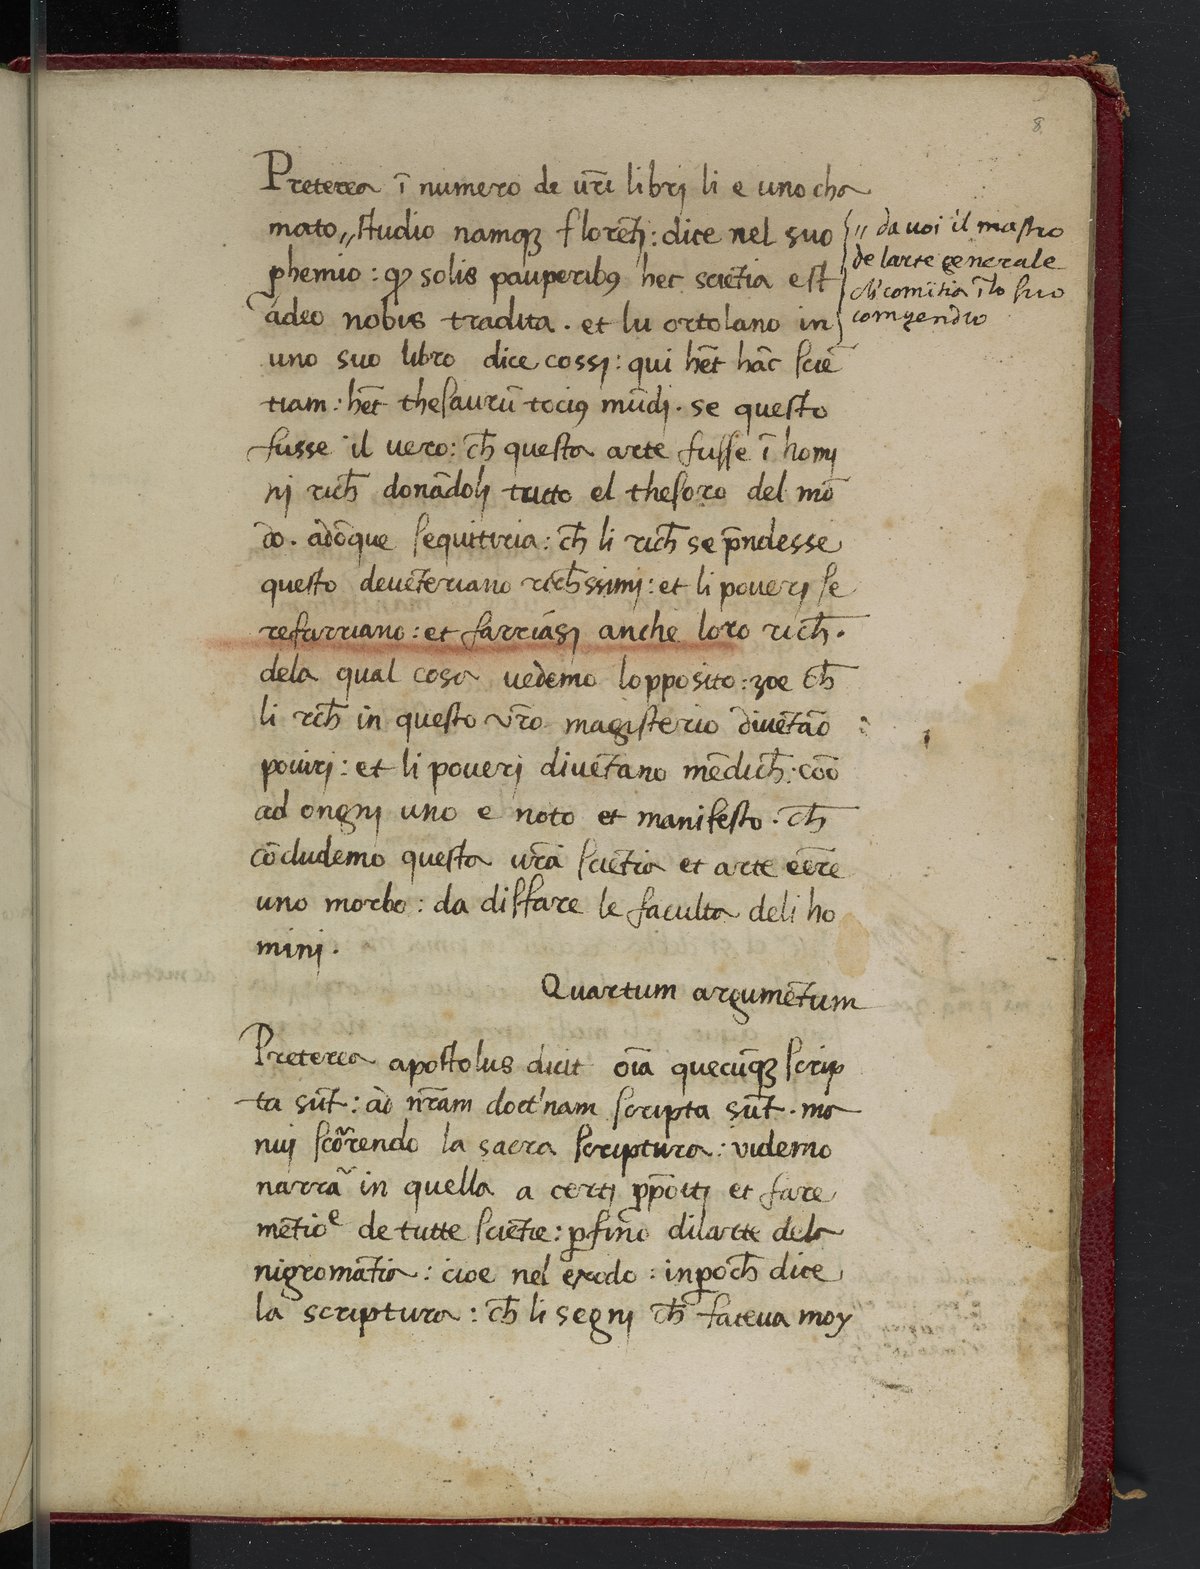 8
Preterea ī numero de ur̄i libri li e uno cha
mato„ studio namqꝫ florētj: dice nel suo
ꝓhemio: ꝙ solis pauperibꝰ hec sciētia est
adeo nobis tradita. et lu ortolano in
uno suo libro dice cossj: qui hēt hāc sciē
tiam: hēt thesaurū tociꝰ mūdj. se questo
fusse il uero: ch̄ questa arte fusse ī homi
nj rich̄ donādolj tutto el thesoro del mō
do. adōque sequitiria: ch̄ li rich̄ se p̄ndesse
questo deuēteriano rich̄ssimj: et li pouerj se
refarriano: et farriāsj anche loro rich̄.
dela qual cosa uedemo lopposito: zoe ch̄
li rich̄ in questo vr̄o magisterio diuētāo
poiuirj: et li pouerj diuētano mēdich̄: cōo
ad ongnj uno e noto et manifesto. ch̄
cōcludemo questa ur̄a sciētia et arte eēre
uno morbo: da disfare le faculta deli ho
minj.
Quartum argumētum
Preterea apostolus dicit oīa quecūqꝫ scrip
ta sūt: ad nr̄am doct'nam scripta sūt. ma
nuj scōrrendo la sacra scriptura: uidemo
narrā in quella a certj ꝓpōitj et fare
mētioe de tutte sciētie: ꝑfino dilarte dela
nigromātia: cioe nel exodo: inꝑoch̄ dice
la scriptura: ch̄ li segnj ch̄ faceua moy
„ da uoi il mastro
de larte generale
di comītia ī lo suo
compendio